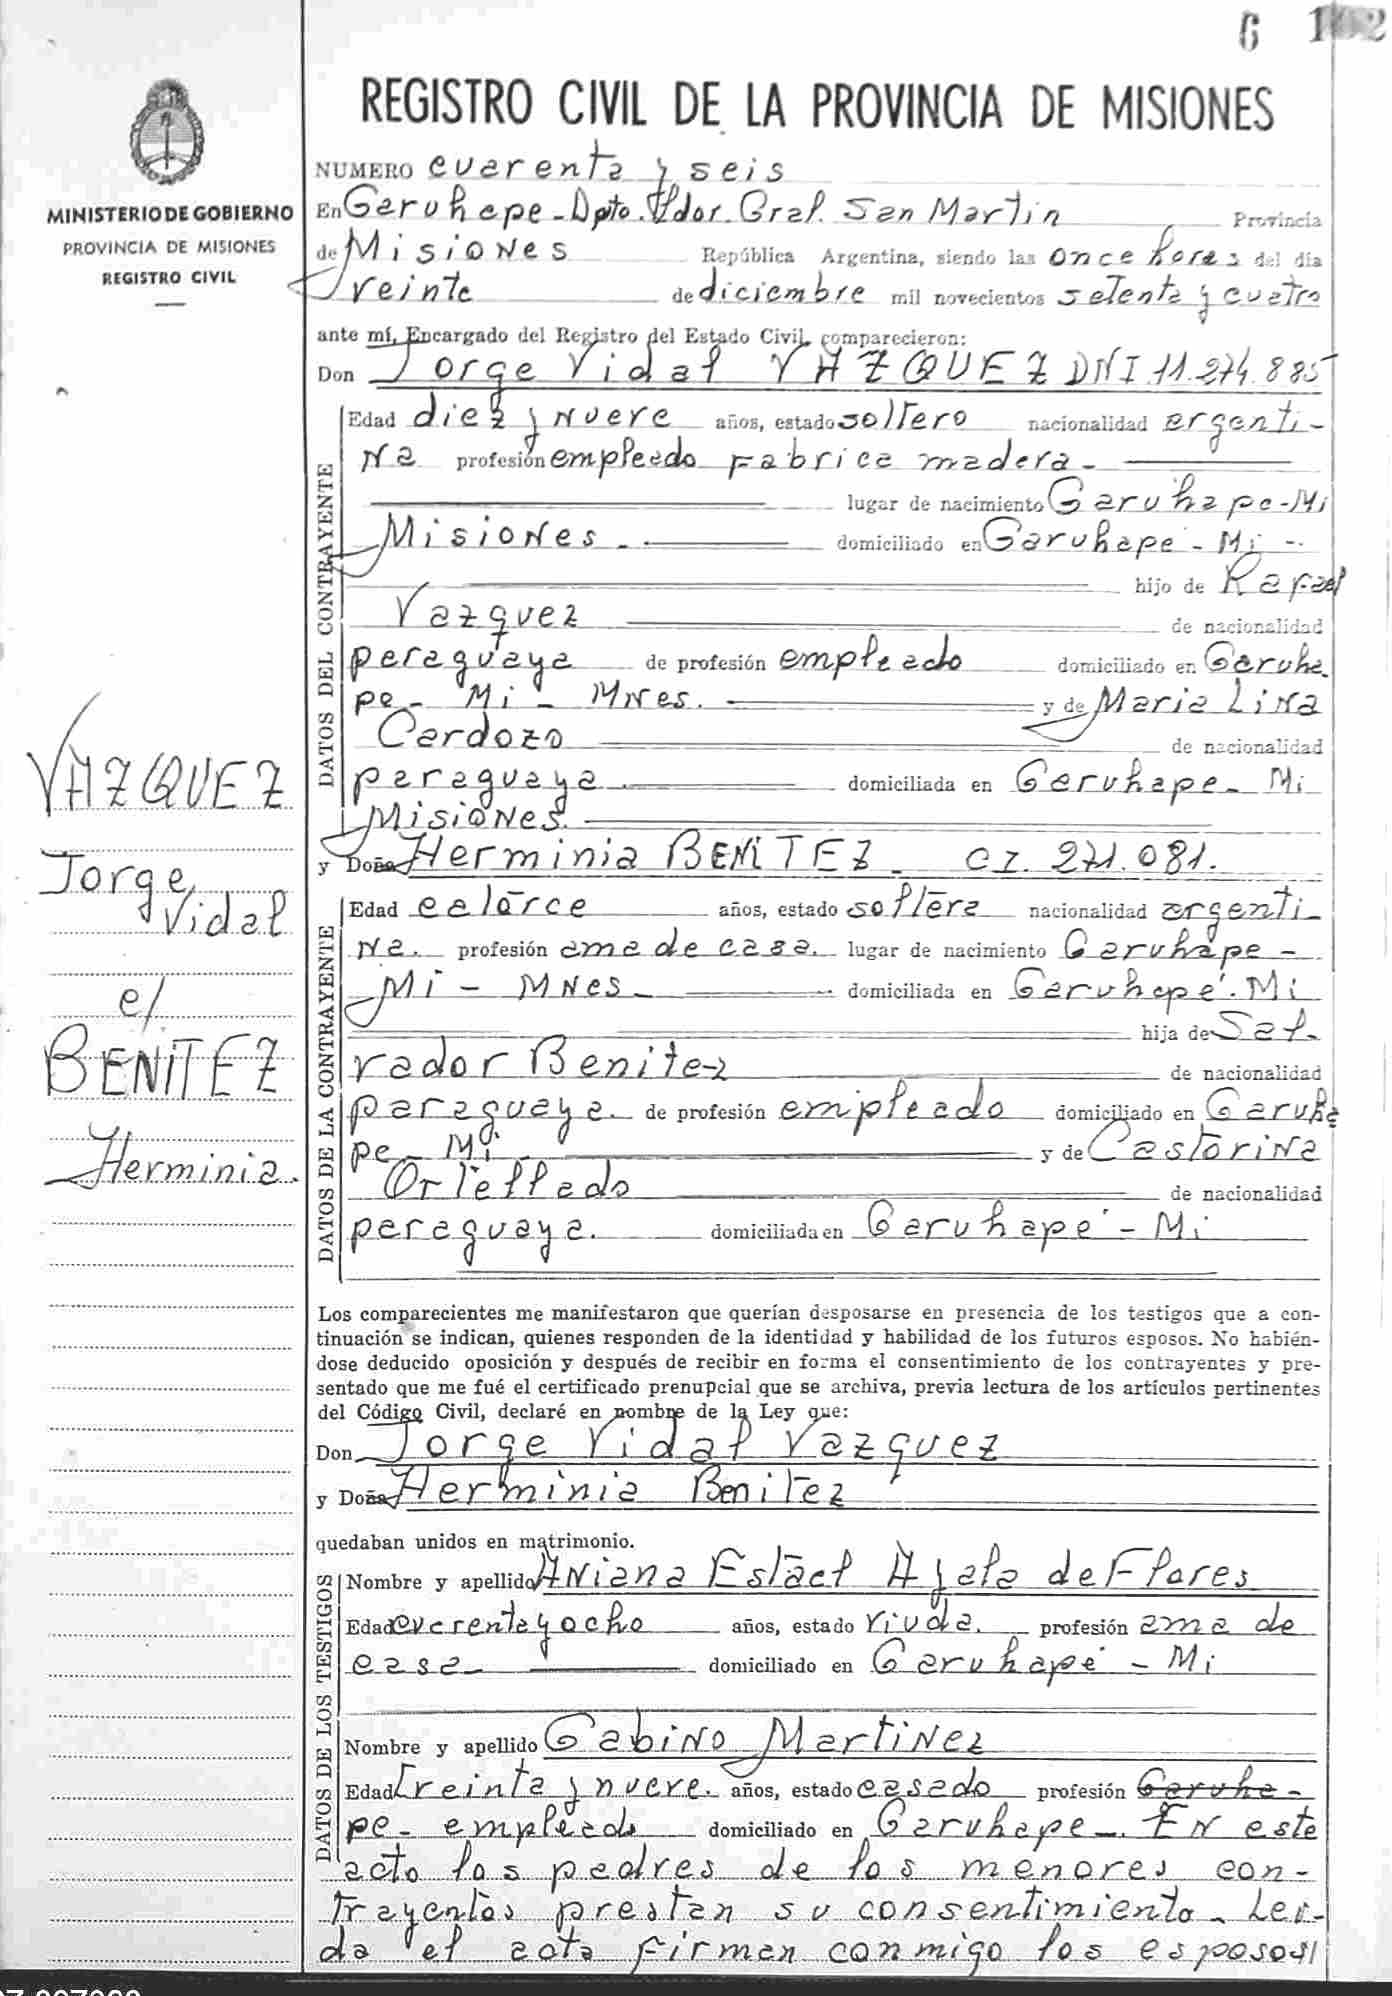 6 102
REGISTRO CIVIL DE LA PROVINCIA DE MISIONES
MINISTERIO DE GOBIERNO
PROVINCIA DE MISIONES
REGISTRO CIVIL
NUMERO cuarenta y seis
En Garuhape - Dpto. Ldor. Gral. San Martin Provincia
de Misiones República Argentina, siendo las once horas del día
veinte de diciembre mil novecientos setenta y cuatro
ante mí, Encargado del Registro del Estado Civil, comparecieron:
Don Jorge Vidal VAZQUEZ DNI 11.274.885
DATOS DEL CONTRAYENTE
Edad diez y nueve años, estado soltero nacionalidad argenti-
na profesión empleado fabrica madera -
lugar de nacimiento Garuhape - Mi
Misiones - domiciliado en Garuhape - Mi -
hijo de Rafael
Vazquez de nacionalidad
paraguaya de profesión empleado domiciliado en Garuha
pe - Mi - Mnes. y de Maria Lina
Cardozo de nacionalidad
paraguaya domiciliada en Garuhape - Mi
Misiones.
y Doña Herminia BENITEZ - CI. 271.081.
DATOS DE LA CONTRAYENTE
Edad catorce años, estado soltera nacionalidad argenti-
na. profesión ama de casa. lugar de nacimiento Garuhape -
Mi - Mnes - domiciliada en Garuhapé - Mi
hija de Sal-
vador Benitez de nacionalidad
paraguaya. de profesión empleado domiciliado en Garuha
pe - Mi - y de Castorina
Ortellado de nacionalidad
paraguaya. domiciliada en Garuhapé - Mi
VAZQUEZ
Jorge
Vidal
c/
BENITEZ
Herminia.
Los comparecientes me manifestaron que querían desposarse en presencia de los testigos que a con-
tinuación se indican, quienes responden de la identidad y habilidad de los futuros esposos. No habién-
dose deducido oposición y después de recibir en forma el consentimiento de los contrayentes y pre-
sentado que me fué el certificado prenupcial que se archiva, previa lectura de los artículos pertinentes
del Código Civil, declaré en nombre de la Ley que:
Don Jorge Vidal Vazquez
y Doña Herminia Benitez
quedaban unidos en matrimonio.
DATOS DE LOS TESTIGOS
Nombre y apellido Aniana Estael Ayala de Flores
Edad cuarenta y ocho años, estado viuda. profesión ama de
casa - domiciliado en Garuhapé - Mi
Nombre y apellido Gabino Martinez
Edad treinta y nueve. años, estado casado profesión Garuha -
pe - empleado domiciliado en Garuhape -. En este
acto los padres de los menores con-
trayentes prestan su consentimiento - Lei-
da el acta firman conmigo los esposos